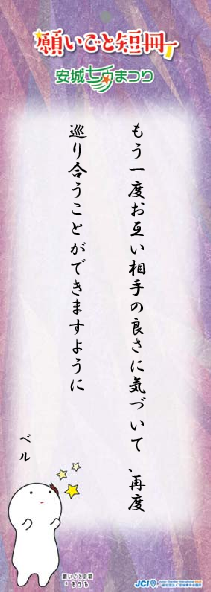 願いごと短冊
安城七夕まつり
もう一度お互い相手の良さに気づいて、再度
巡り合うことができますように
ベル
願いごと短冊
JCI